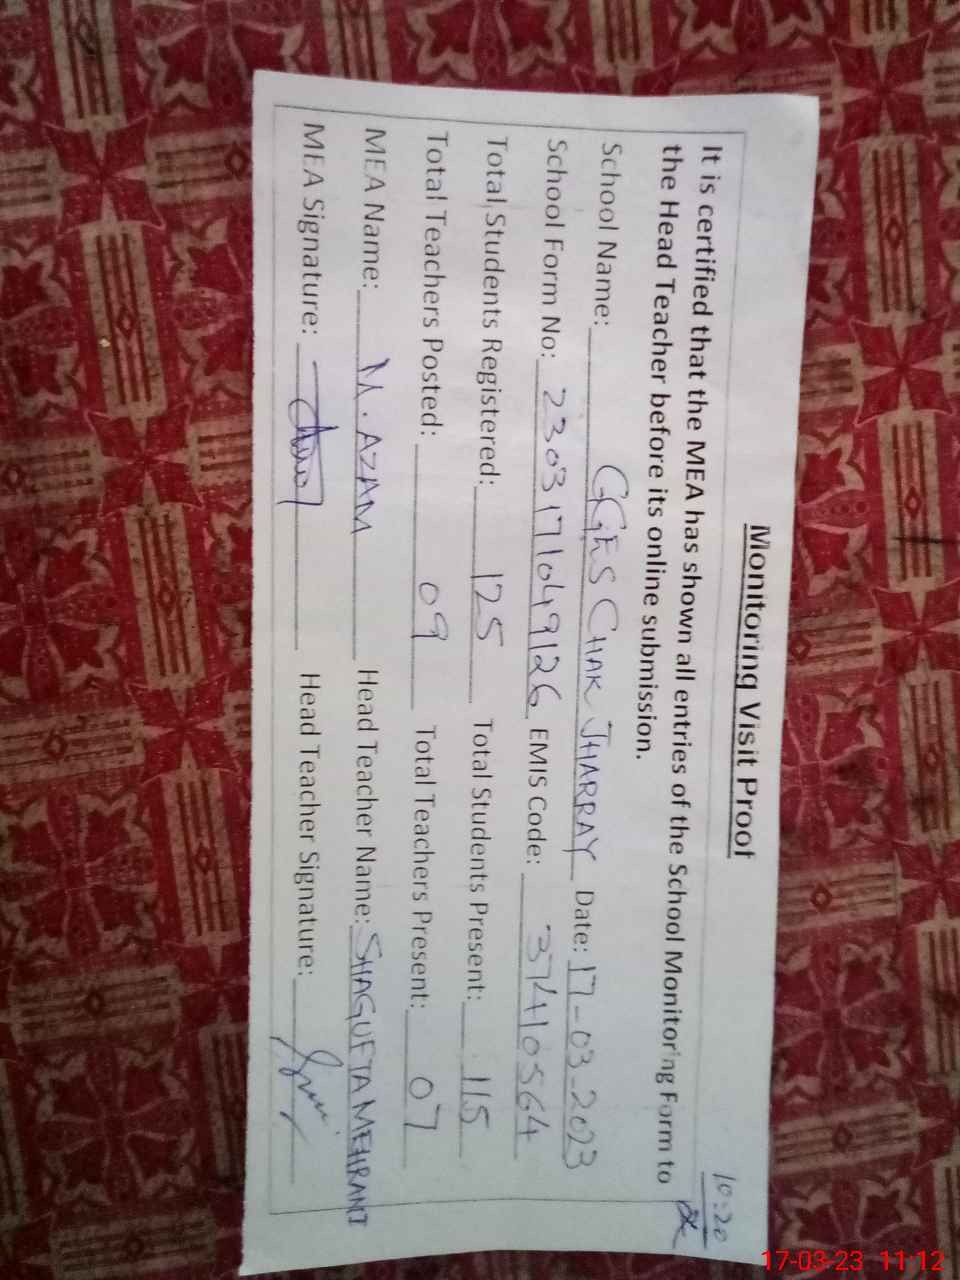 Monitoring Visit Proof
10:20
It is certified that the MEA has shown all entries of the School Monitoring Form to
the Head Teacher before its online submission.
School Name: GGES CHAK JHARRAY Date: 17-03-2023
School Form No: 2303171049126 EMIS Code: 37410564
Total Students Registered: 125 Total Students Present: 115
Total Teachers Posted: 09 Total Teachers Present: 07
MEA Name: M. AZAM Head Teacher Name: SHAGUFTA MEHRANI
MEA Signature: Head Teacher Signature:
17-03-23 11:12